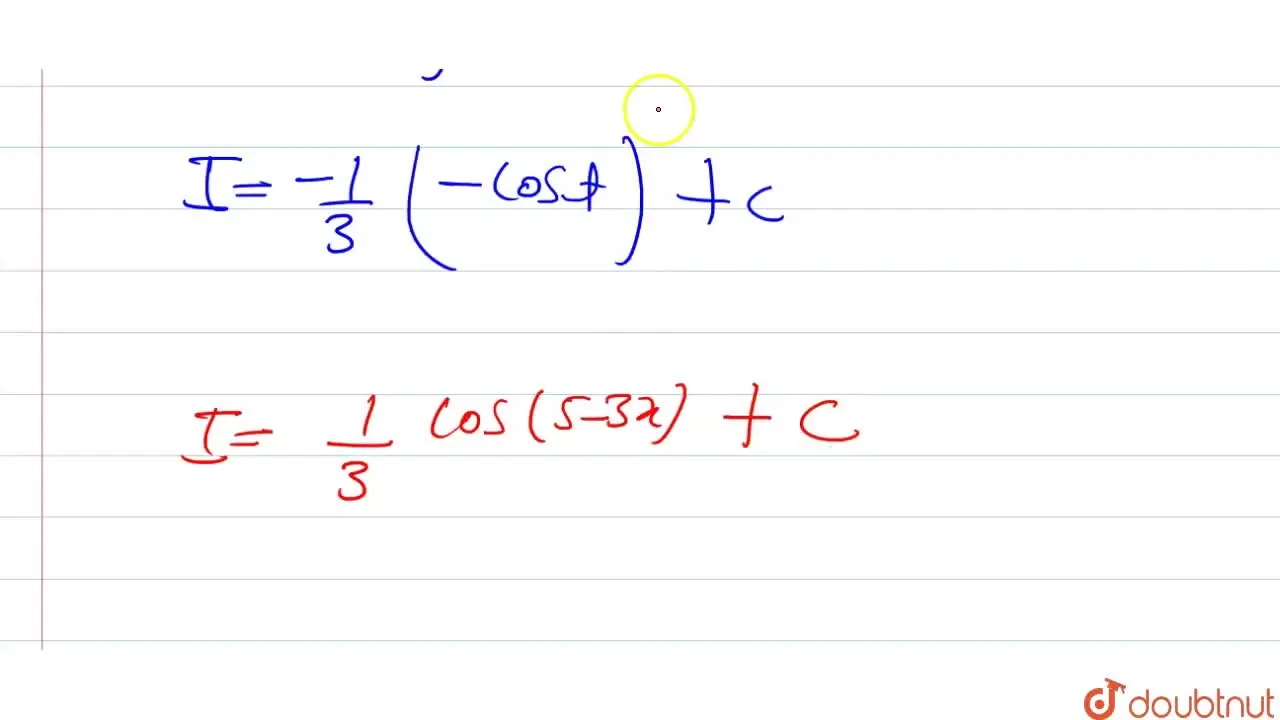 I = -1/3 (-cos t) + c
I = 1/3 cos(5-3x) + c
doubtnut